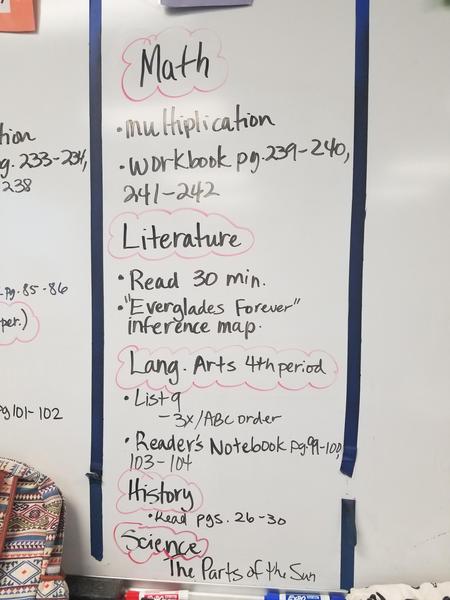 Math
• multiplication
• workbook pg. 239-240,
241-242
Literature
• Read 30 min.
• "Everglades Forever"
inference map.
Lang. Arts 4th period
• List 9
- 3x/ABC order
• Reader's Notebook pg. 99-100,
103-104
History
• Read pgs. 26-30
Science
The Parts of the Sun
tion
g. 233-234,
238
pg. 85-86
per.)
pg 101-102
EXPO